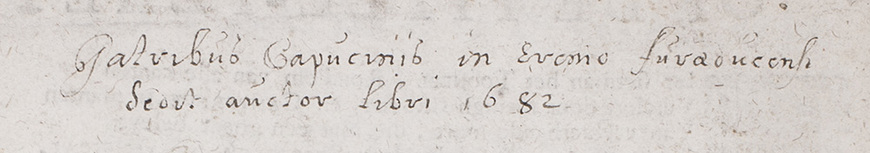 Patribus Capucinis in Eremo furæducensi
dedit auctor libri 1682